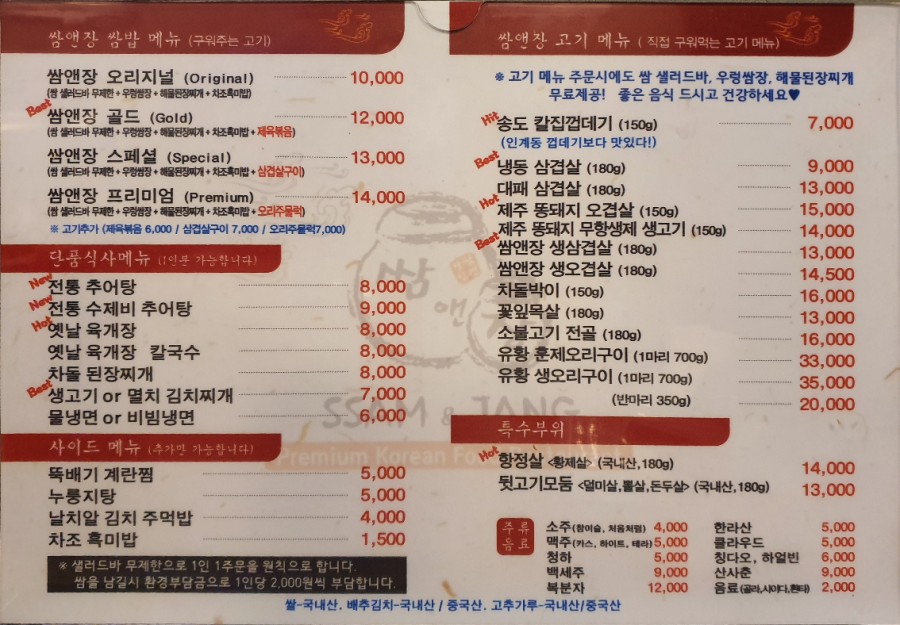 쌈앤장 쌈밥 메뉴 (구워주는 고기)
쌈앤장 오리지널 (Original) 10,000
(쌈 샐러드바 무제한 + 우렁쌈장 + 해물된장찌개 + 차조흑미밥)
Best
쌈앤장 골드 (Gold) 12,000
(쌈 샐러드바 무제한 + 우렁쌈장 + 해물된장찌개 + 차조흑미밥 + 제육볶음)
쌈앤장 스페셜 (Special) 13,000
(쌈 샐러드바 무제한 + 우렁쌈장 + 해물된장찌개 + 차조흑미밥 + 삼겹살구이)
쌈앤장 프리미엄 (Premium) 14,000
(쌈 샐러드바 무제한 + 우렁쌈장 + 해물된장찌개 + 차조흑미밥 + 오리주물럭)
※ 고기추가 (제육볶음 6,000 / 삼겹살구이 7,000 / 오리주물럭7,000)
단품식사메뉴 (1인분 가능합니다)
New 전통 추어탕 8,000
New 전통 수제비 추어탕 9,000
Hot 옛날 육개장 8,000
옛날 육개장 칼국수 8,000
차돌 된장찌개 8,000
Best 생고기 or 멸치 김치찌개 7,000
물냉면 or 비빔냉면 6,000
사이드 메뉴 (추가만 가능합니다)
뚝배기 계란찜 5,000
누룽지탕 5,000
날치알 김치 주먹밥 4,000
차조 흑미밥 1,500
※ 샐러드바 무제한으로 1인 1주문을 원칙으로 합니다.
쌈을 남길시 환경부담금으로 1인당 2,000원씩 부담합니다.
쌈앤장 고기 메뉴 ( 직접 구워먹는 고기 메뉴)
※ 고기 메뉴 주문시에도 쌈 샐러드바, 우렁쌈장, 해물된장찌개
무료제공! 좋은 음식 드시고 건강하세요♥
Hit 송도 칼집껍데기 (150g) 7,000
(인계동 껍데기보다 맛있다!)
Best 냉동 삼겹살 (180g) 9,000
대패 삼겹살 (180g) 13,000
Hot 제주 똥돼지 오겹살 (150g) 15,000
제주 똥돼지 무항생제 생고기 (150g) 14,000
Best 쌈앤장 생삼겹살 (180g) 13,000
쌈앤장 생오겹살 (180g) 14,500
차돌박이 (150g) 16,000
꽃잎목살 (180g) 13,000
소불고기 전골 (180g) 16,000
유황 훈제오리구이 (1마리 700g) 33,000
유황 생오리구이 (1마리 700g) 35,000
(반마리 350g) 20,000
특수부위
Hot 항정살 <황제살> (국내산,180g) 14,000
뒷고기모둠 <덜미살,뽈살,돈두살> (국내산,180g) 13,000
주류
음료
소주(참이슬, 처음처럼) 4,000
맥주(카스, 하이트, 테라) 5,000
청하 5,000
백세주 9,000
복분자 12,000
한라산 5,000
클라우드 5,000
칭다오, 하얼빈 6,000
산사춘 9,000
음료(콜라,사이다,환타) 2,000
쌀-국내산. 배추김치-국내산 / 중국산. 고추가루-국내산/중국산
쌈
앤
SSAM & JANG
Premium Korean